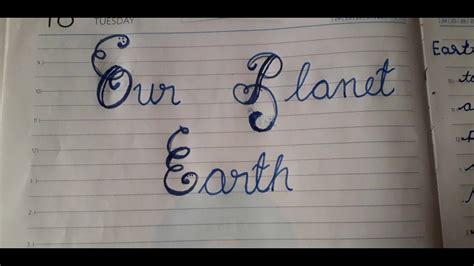 TUESDAY
Our Planet
Earth
Eart